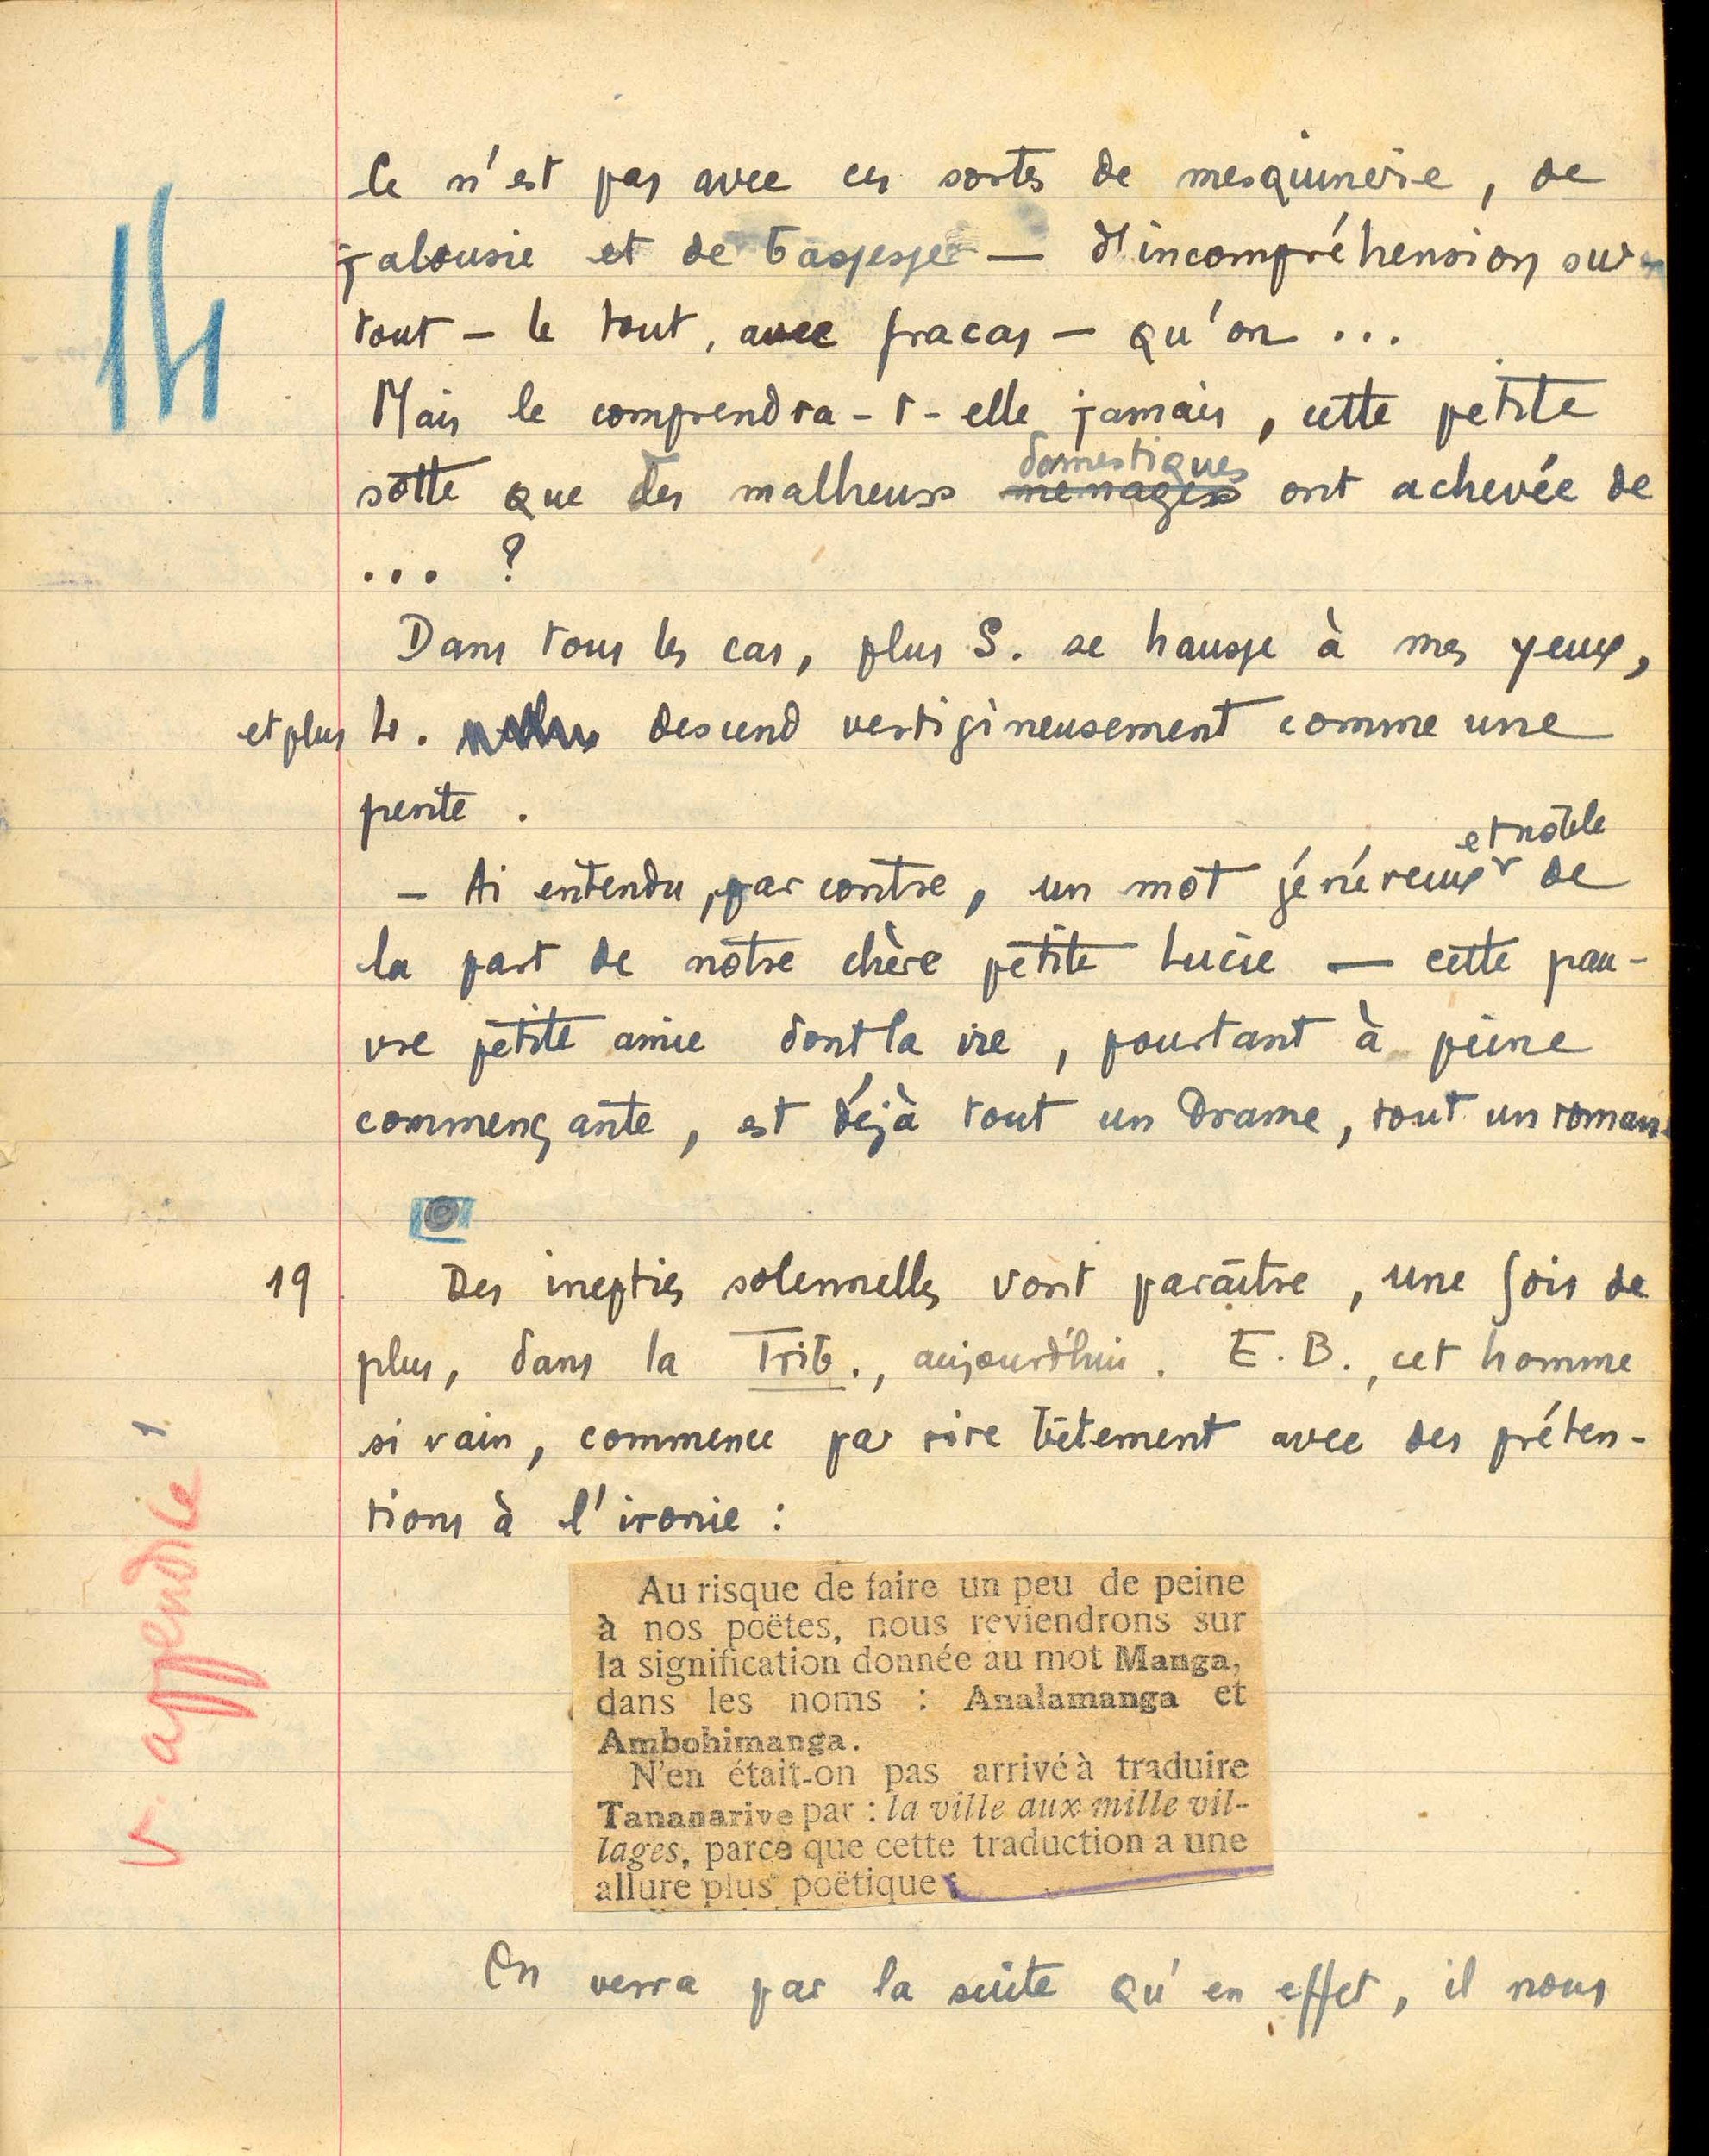 14
Ce n'est pas avec ces sortes de mesquinerie, de
jalousie et de bassesse — d'incompréhension sur-
tout – le tout, avec fracas – qu'on ...
Mais le comprendra-t-elle jamais, cette petite
domestiques
sotte que des malheurs ménagers ont achevée de
... ?
Dans tous les cas, plus S. se hausse à mes yeux,
et plus H. descend vertigineusement comme une
pente.
et noble
– Ai entendu, par contre, un mot généreux de
la part de notre chère petite Lucie — cette pau-
vre petite amie dont la vie, pourtant à peine
commençante, est déjà tout un drame, tout un roman.
19 Des inepties solennelles vont paraître, une fois de
plus, dans la Trib., aujourd'hui. E. B., cet homme
si vain, commence par rire bêtement avec des préten-
tions à l'ironie :
v. appendice 1
Au risque de faire un peu de peine
à nos poëtes, nous reviendrons sur
la signification donnée au mot Manga,
dans les noms : Analamanga et
Ambohimanga.
N'en était-on pas arrivé à traduire
Tananarive par : la ville aux mille vil-
lages, parce que cette traduction a une
allure plus poëtique
On verra par la suite qu'en effet, il nous